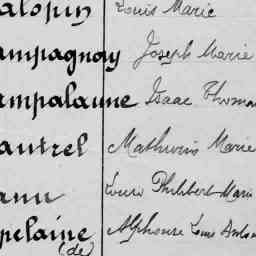 alopin Louis Marie
ampagnay Joseph Marie
ampalaune Isaac Thoma
autrel Mathurin Marie
ann Louis Philibert Marie
pelaine Alphonse Louis
(de)